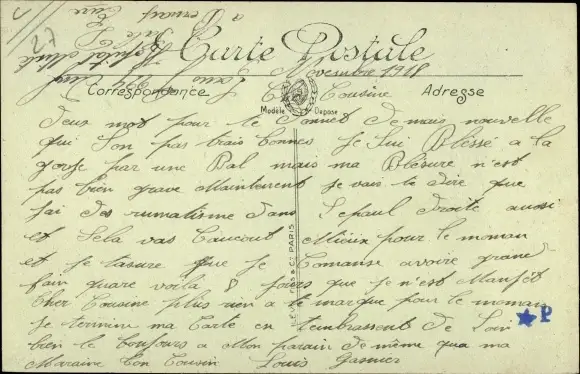 27
Carte Postale
Novembre 1918
Correspondance
Adresse
Cher Cousine
Modèle Déposé
Deux mot pour te Donnet de mais nouvelle
qui Son pas trais bonnes Je Sui Bléssé a la
gorge par une Bal mais ma Blésure n'est
pas bien grave Maintenent je vais te dire que
jai des rumatisme dans l'epaul droite aussi
et Sela vas beaucout Mieux pour le moman
et je tasure que je Comanse avoire grand
fain quare voilà 8 jours que je n'est Manjét
cher Cousine plus rien a te marque pour le moman
Je termine ma Carte en tembrassent de Loin
bien le bonjours a Mon parain de même qua ma
Maraine ton Cousin Louis Gasnier
& Cie PARIS
P